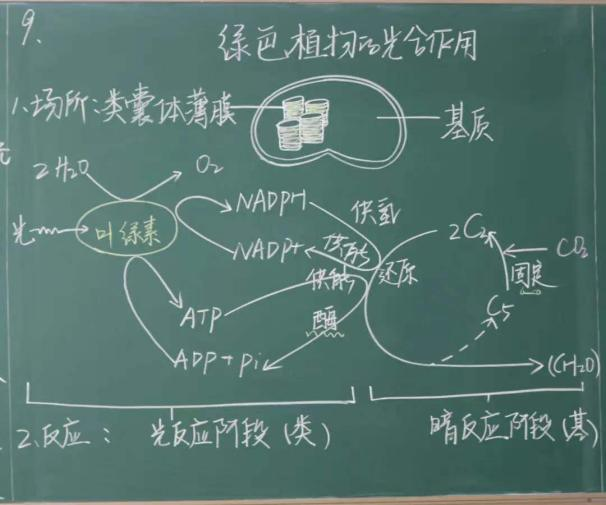 9、
绿色植物的光合作用
1.场所：类囊体薄膜
基质
2H2O
O2
光
叶绿素
NADPH
供氢
NADP+
供能
供能
还原
2C2
CO2
固定
C5
ATP
酶
ADP+Pi
(CH2O)
2.反应：
光反应阶段（类）
暗反应阶段（基）